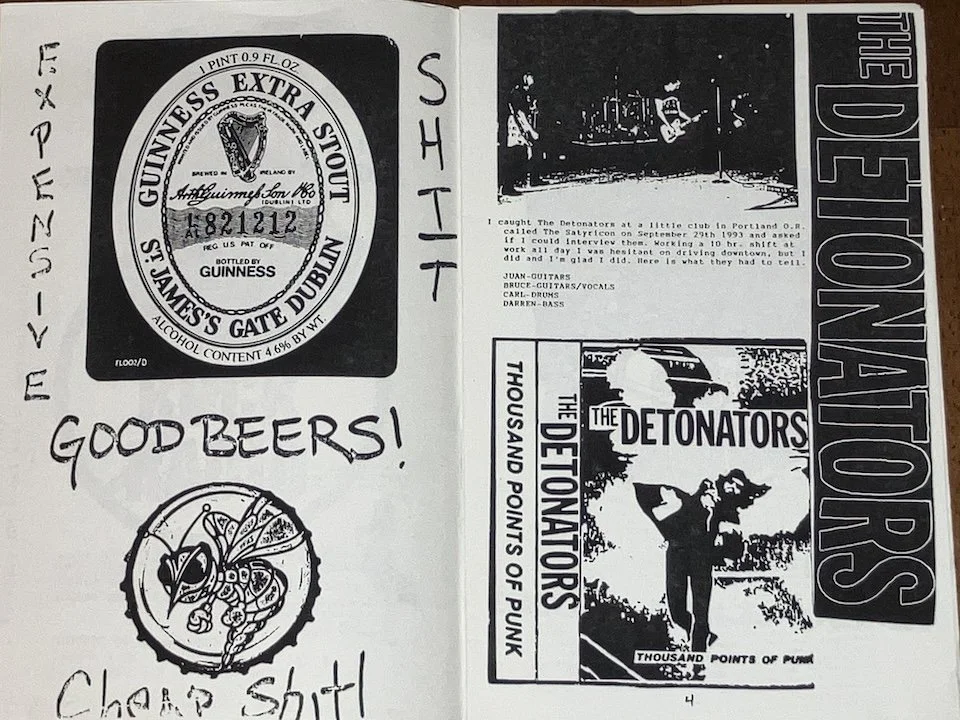 EXPENSIVE
SHIT
1 PINT 0.9 FL. OZ.
GUINNESS EXTRA STOUT
BREWED IN IRELAND BY
Arth Guinness Son & Co
(DUBLIN) LTD
821212
REG. U.S. PAT. OFF
BOTTLED BY
GUINNESS
ST. JAMES'S GATE DUBLIN
ALCOHOL CONTENT 4.6% BY WT.
FL002/D
GOOD BEERS!
Cheap Shit!
THE DETONATORS
I caught The Detonators at a little club in Portland O.R.
called The Satyricon on September 29th 1993 and asked
if I could interview them. Working a 10 hr. shift at
work all day I was hesitant on driving downtown, but I
did and I'm glad I did. Here is what they had to tell.
JUAN-GUITARS
BRUCE-GUITARS/VOCALS
CARL-DRUMS
DARREN-BASS
THOUSAND POINTS OF PUNK
THE DETONATORS
THE DETONATORS
THOUSAND POINTS OF PUNK
4